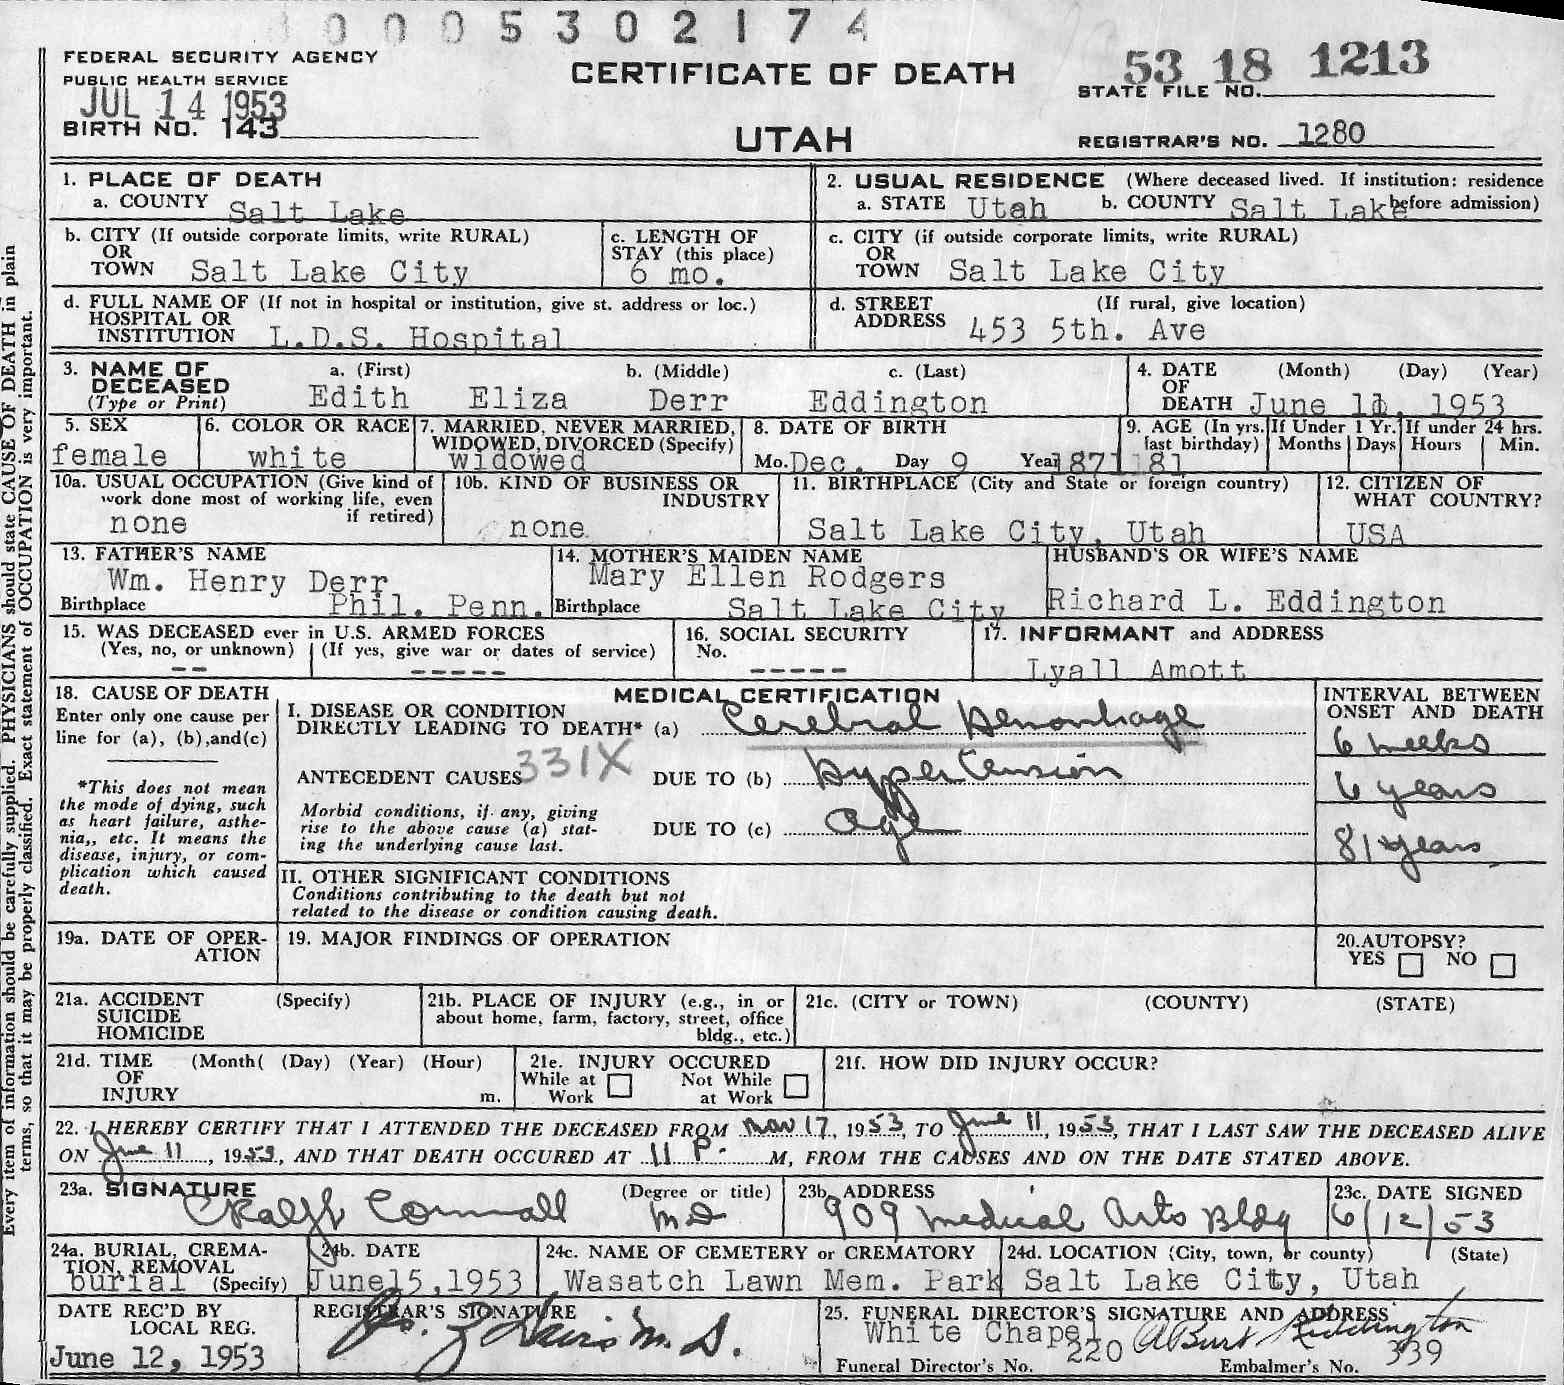 0005302174
FEDERAL SECURITY AGENCY
PUBLIC HEALTH SERVICE
JUL 14 1953
BIRTH NO. 143
CERTIFICATE OF DEATH
UTAH
53 18 1213
STATE FILE NO.
REGISTRAR'S NO. 1280
Every item of information should be carefully supplied. PHYSICIANS should state CAUSE OF DEATH in plain
terms, so that it may be properly classified. Exact statement of OCCUPATION is very important.
1. PLACE OF DEATH
a. COUNTY Salt Lake
2. USUAL RESIDENCE (Where deceased lived. If institution: residence
before admission)
a. STATE Utah b. COUNTY Salt Lake
b. CITY (If outside corporate limits, write RURAL)
OR
TOWN Salt Lake City
c. LENGTH OF
STAY (this place)
6 mo.
c. CITY (if outside corporate limits, write RURAL)
OR
TOWN Salt Lake City
d. FULL NAME OF (If not in hospital or institution, give st. address or loc.)
HOSPITAL OR
INSTITUTION L.D.S. Hospital
d. STREET (If rural, give location)
ADDRESS 453 5th. Ave
3. NAME OF
DECEASED
(Type or Print)
a. (First) b. (Middle) c. (Last)
Edith Eliza Derr Eddington
4. DATE (Month) (Day) (Year)
OF
DEATH June 11, 1953
5. SEX
female
6. COLOR OR RACE
white
7. MARRIED, NEVER MARRIED,
WIDOWED, DIVORCED (Specify)
widowed
8. DATE OF BIRTH
Mo. Dec. Day 9 Year 1871
9. AGE (In yrs.
last birthday)
81
If Under 1 Yr.
Months Days
If under 24 hrs.
Hours Min.
10a. USUAL OCCUPATION (Give kind of
work done most of working life, even
if retired)
none
10b. KIND OF BUSINESS OR
INDUSTRY
none
11. BIRTHPLACE (City and State or foreign country)
Salt Lake City, Utah
12. CITIZEN OF
WHAT COUNTRY?
USA
13. FATHER'S NAME
Wm. Henry Derr
Birthplace Phil. Penn.
14. MOTHER'S MAIDEN NAME
Mary Ellen Rodgers
Birthplace Salt Lake City
HUSBAND'S OR WIFE'S NAME
Richard L. Eddington
15. WAS DECEASED ever in U.S. ARMED FORCES
(Yes, no, or unknown) (If yes, give war or dates of service)
-- -----
16. SOCIAL SECURITY
No.
-----
17. INFORMANT and ADDRESS
Lyall Amott
18. CAUSE OF DEATH
Enter only one cause per
line for (a), (b), and(c)
*This does not mean
the mode of dying, such
as heart failure, asthe-
nia,, etc. It means the
disease, injury, or com-
plication which caused
death.
MEDICAL CERTIFICATION
I. DISEASE OR CONDITION
DIRECTLY LEADING TO DEATH* (a) Cerebral Hemorrhage
ANTECEDENT CAUSES 331X DUE TO (b) Hypertension
Morbid conditions, if any, giving
rise to the above cause (a) stat-
ing the underlying cause last.
DUE TO (c) age
INTERVAL BETWEEN
ONSET AND DEATH
6 weeks
6 years
81 years
II. OTHER SIGNIFICANT CONDITIONS
Conditions contributing to the death but not
related to the disease or condition causing death.
19a. DATE OF OPER-
ATION
19. MAJOR FINDINGS OF OPERATION
20. AUTOPSY?
YES NO
21a. ACCIDENT (Specify)
SUICIDE
HOMICIDE
21b. PLACE OF INJURY (e.g., in or
about home, farm, factory, street, office
bldg., etc.)
21c. (CITY or TOWN) (COUNTY) (STATE)
21d. TIME (Month( (Day) (Year) (Hour)
OF
INJURY m.
21e. INJURY OCCURED
While at Work Not While at Work
21f. HOW DID INJURY OCCUR?
22. I HEREBY CERTIFY THAT I ATTENDED THE DECEASED FROM Nov 17, 1953, TO June 11, 1953, THAT I LAST SAW THE DECEASED ALIVE
ON June 11, 1953, AND THAT DEATH OCCURED AT 11 P. M, FROM THE CAUSES AND ON THE DATE STATED ABOVE.
23a. SIGNATURE (Degree or title)
Ralph Cornwall MD
23b. ADDRESS
909 Medical Arts Bldg
23c. DATE SIGNED
6/12/53
24a. BURIAL, CREMA-
TION, REMOVAL
burial (Specify)
24b. DATE
June 15, 1953
24c. NAME OF CEMETERY or CREMATORY
Wasatch Lawn Mem. Park
24d. LOCATION (City, town, or county) (State)
Salt Lake City, Utah
DATE REC'D BY
LOCAL REG.
June 12, 1953
REGISTRAR'S SIGNATURE
Davis M.D.
25. FUNERAL DIRECTOR'S SIGNATURE AND ADDRESS
White Chapel A Burt Eddington
Funeral Director's No. 220 Embalmer's No. 339